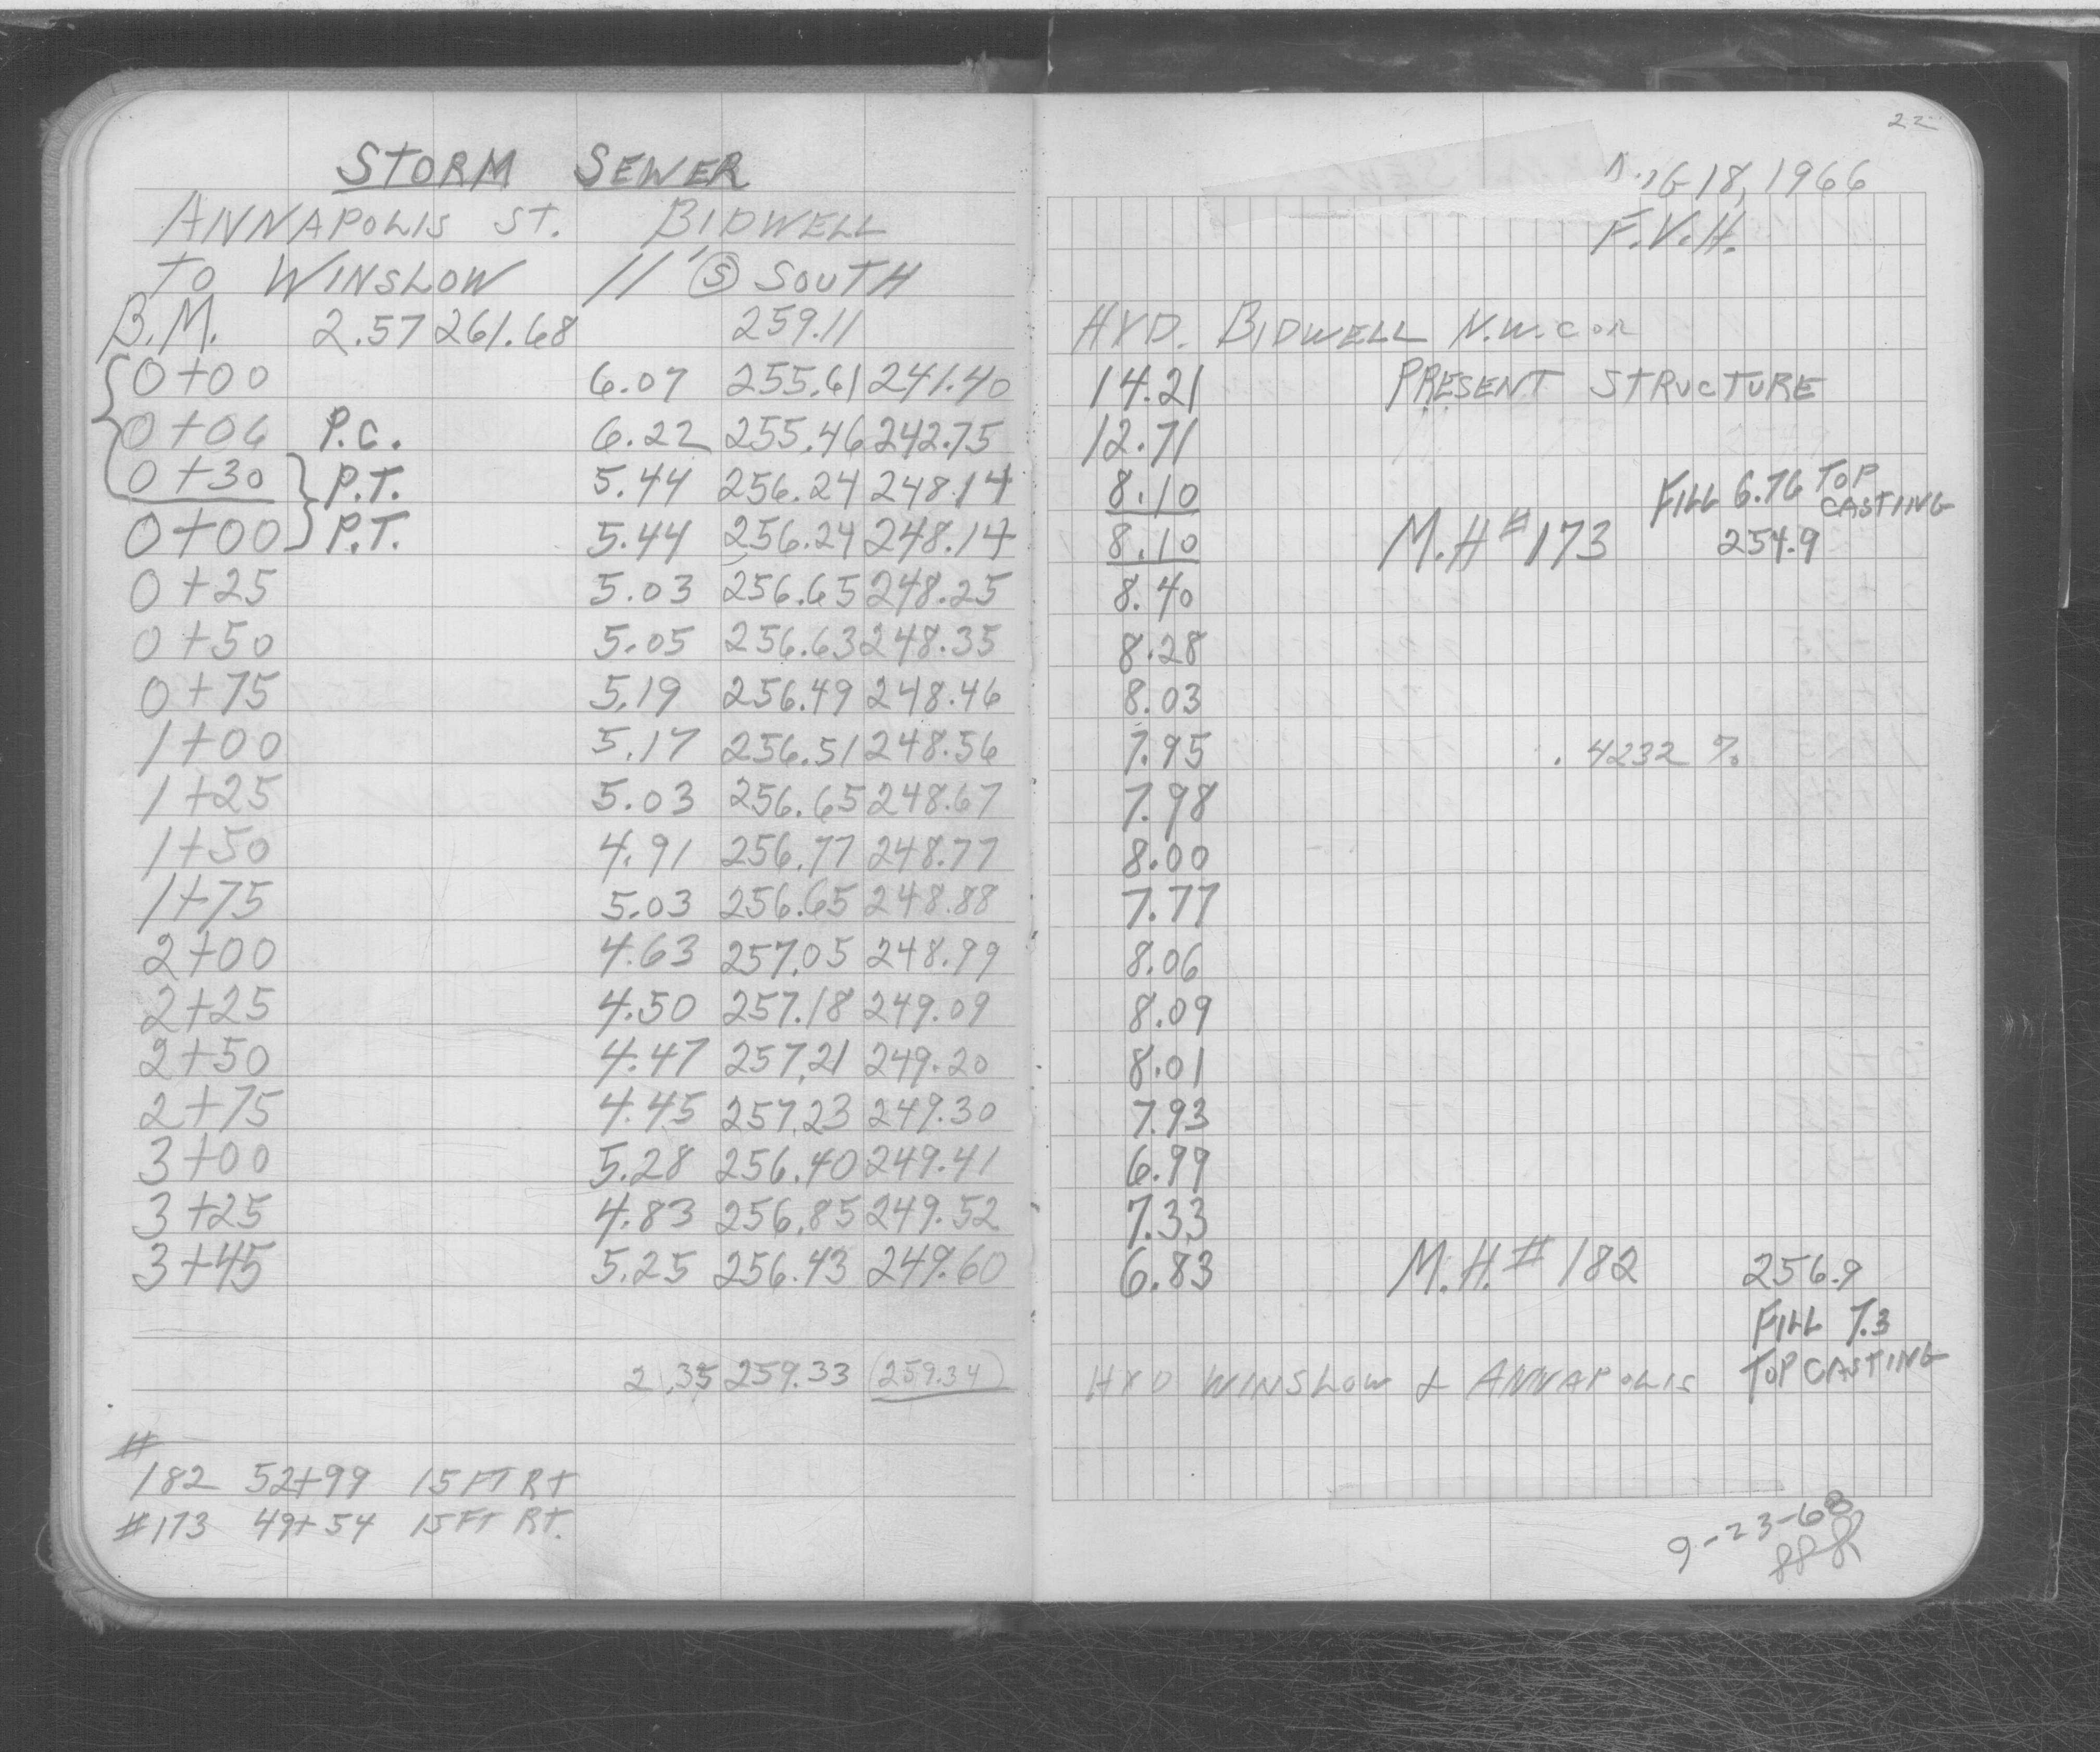 STORM SEWER
ANNAPOLIS ST. BIDWELL
TO WINSLOW 11' Ⓢ SOUTH
B.M. 2.57 261.68 259.11
0+00 6.07 255.61 241.40
0+06 P.C. 6.22 255.46 242.75
0+30 P.T. 5.44 256.24 248.14
0+00 P.T. 5.44 256.24 248.14
0+25 5.03 256.65 248.25
0+50 5.05 256.63 248.35
0+75 5.19 256.49 248.46
1+00 5.17 256.51 248.56
1+25 5.03 256.65 248.67
1+50 4.91 256.77 248.77
1+75 5.03 256.65 248.88
2+00 4.63 257.05 248.99
2+25 4.50 257.18 249.09
2+50 4.47 257.21 249.20
2+75 4.45 257.23 249.30
3+00 5.28 256.40 249.41
3+25 4.83 256.85 249.52
3+45 5.25 256.43 249.60
2.35 259.33 (259.34)
#
182 52+99 15 FT RT
#173 49+54 15 FT RT.
22
AUG 18, 1966
F.V.H.
HYD. BIDWELL N.W. COR
14.21 PRESENT STRUCTURE
12.71
8.10 FILL 6.76 TOP CASTING
8.10 M.H #173 254.9
8.40
8.28
8.03
7.95 .4232 %
7.98
8.00
7.77
8.06
8.09
8.01
7.93
6.99
7.33
6.83 M.H. #182 256.9
FILL 7.3
HYD WINSLOW & ANNAPOLIS TOP CASTING
9-23-68